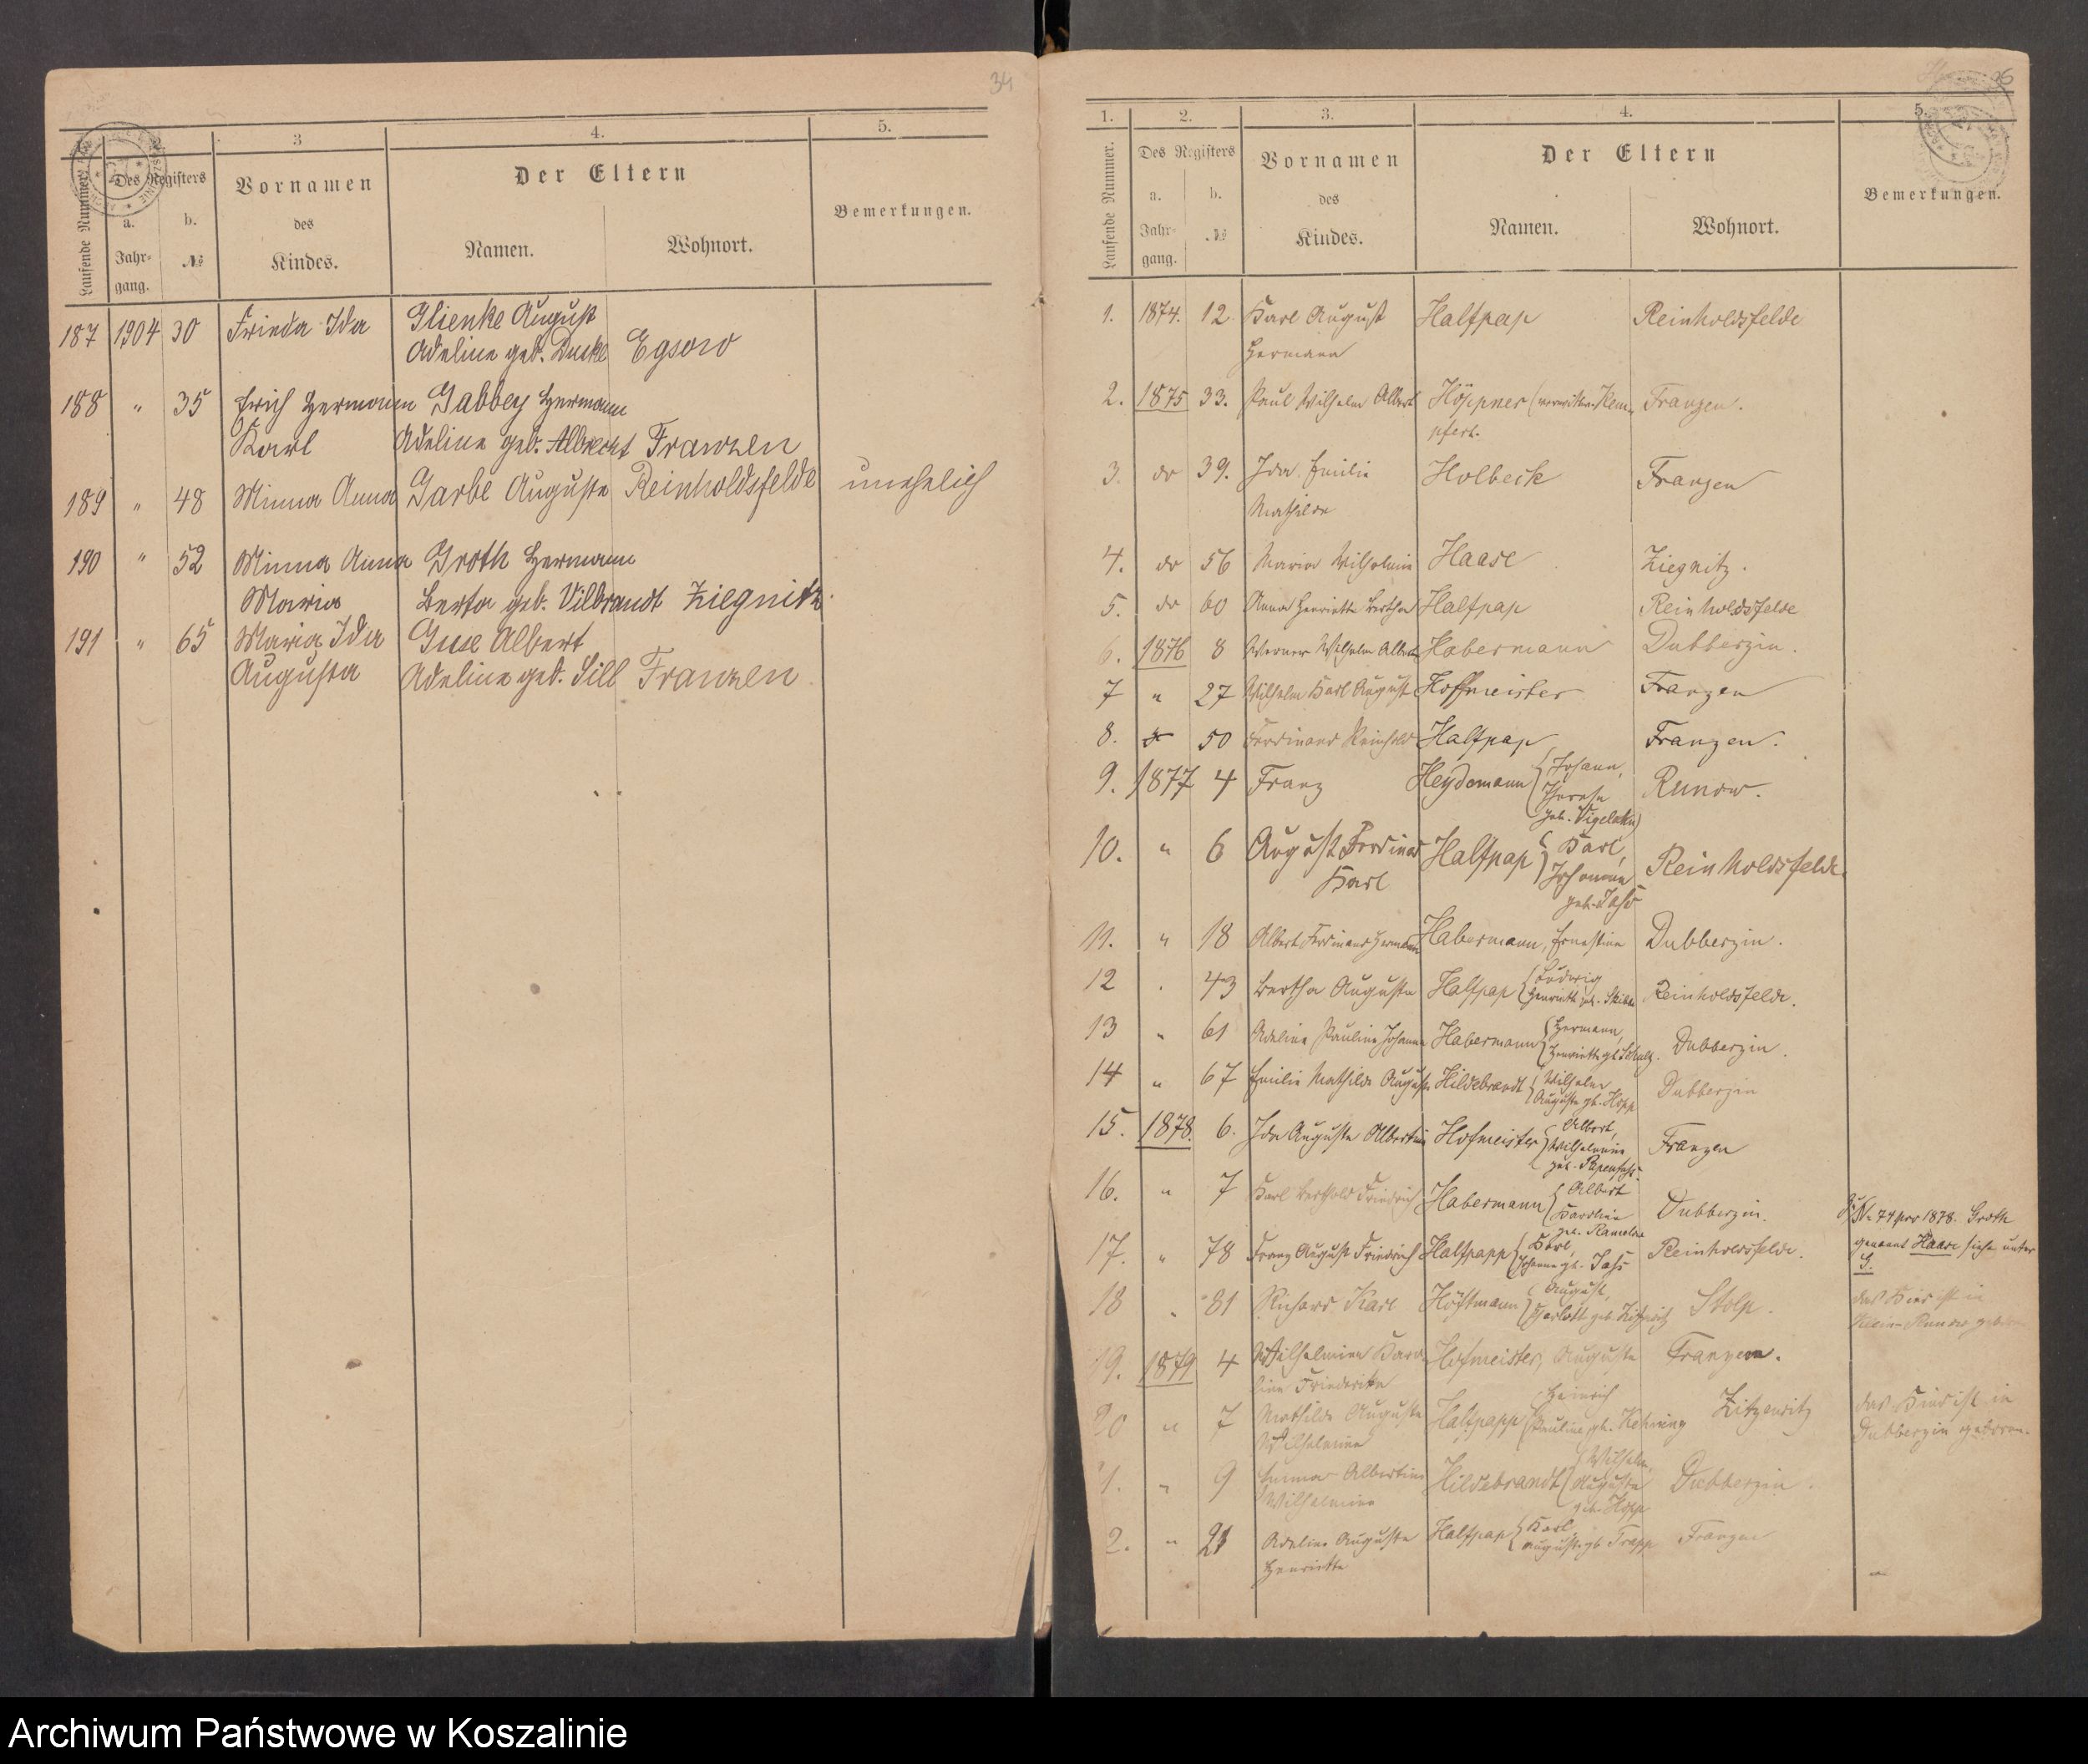 34
3
4.
5.
Laufende Nummer.
Des Registers
Vornamen
Der Eltern
Bemerkungen.
a.
b.
des
Jahr-
gang.
№
Kindes.
Namen.
Wohnort.
187 1904 30 Frieda Ida Glienke August
Adeline geb. Egsow
188 " 35 Erich Hermann Gabbey Hermann
Karl Adeline geb. Albrecht Franzen
189 " 48 Minna Anna Garbe Auguste Reinholdsfelde unehelich
190 " 52 Minna Anna Groth Hermann
Maria Berta geb. Vilbrandt Ziegnitz
191 " 65 Maria Ida Guse Albert
Augusta Adeline geb. Sill Franzen
1.
2.
3.
4.
5.
Laufende Nummer.
Des Registers
Vornamen
Der Eltern
Bemerkungen.
a.
b.
des
Jahr-
gang.
№
Kindes.
Namen.
Wohnort.
1. 1874. 12 Karl August Halfpap Reinholdsfelde
Hermann
2. 1875 33. Paul Wilhelm Albert Höppner Franzen.
3. do 39. Ida Emilie Holbeck Franzen
Mathilde
4. do 56 Maria Wilhelmine Haase Ziegnitz.
5. do 60 Anna Henriette Bertha Halfpap Reinholdsfelde
6. 1876 8 Werner Wilhelm Albert Habermann Dubberzin.
7 " 27 Wilhelm Karl August Hoffmeister Franzen
8. 50 Ferdinand Reinhold Halfpap Franzen.
9. 1877 4 Franz Heydemann (Johann, Runow.
Therese
geb.
10. " 6 August Ferdinand Halfpap (Karl, Reinholdsfelde.
Karl Johanna
geb. Jahs
11. " 18 Albert Ferdinand Hermann Habermann, Ernestine Dubberzin.
12 . 43 Bertha Auguste Halfpap (Ludwig Reinholdsfelde.
Henriette geb.
13 " 61 Adeline Pauline Johanna Habermann (Hermann, Dubberzin.
Henriette gb Schulz.
14 " 67 Emilie Mathilde Auguste Hildebrandt (Wilhelm Dubberzin
Auguste gb. Hopp
15. 1878. 6. Ida Auguste Albertine Hofmeister (Albert, Franzen
Wilhelmine
geb. Papenfuhs.
16. " 7 Karl Berthold Friedrich Habermann (Albert Dubberzin.
Karoline
geb.
17. " 78 Franz August Friedrich Halfpapp (Karl, Reinholdsfelde.
Johanna gb. Jahs
№ 74 pro 1878. Groth
genannt Haase siehe unter
G.
18 " 81 Richard Karl Höftmann (August, Stolp.
das Kind ist in
Klein-Runow geboren
19. 1879 4 Wilhelmine Karo- Hofmeister, Auguste Franzen.
line Friederike
20 " 7 Mathilde Auguste Halfpapp (Heinrich Zitzewitz das Kind ist in
Wilhelmine Pauline gb. Kehring Dubberzin geboren.
1. " 9 Emma Albertine Hildebrandt (Wilhelm, Dubberzin.
Wilhelmine Auguste
geb. Hopp
2. " 21 Adeline Auguste Halfpap (Karl, Franzen
Henriette Auguste gb Trapp
Archiwum Państwowe w Koszalinie